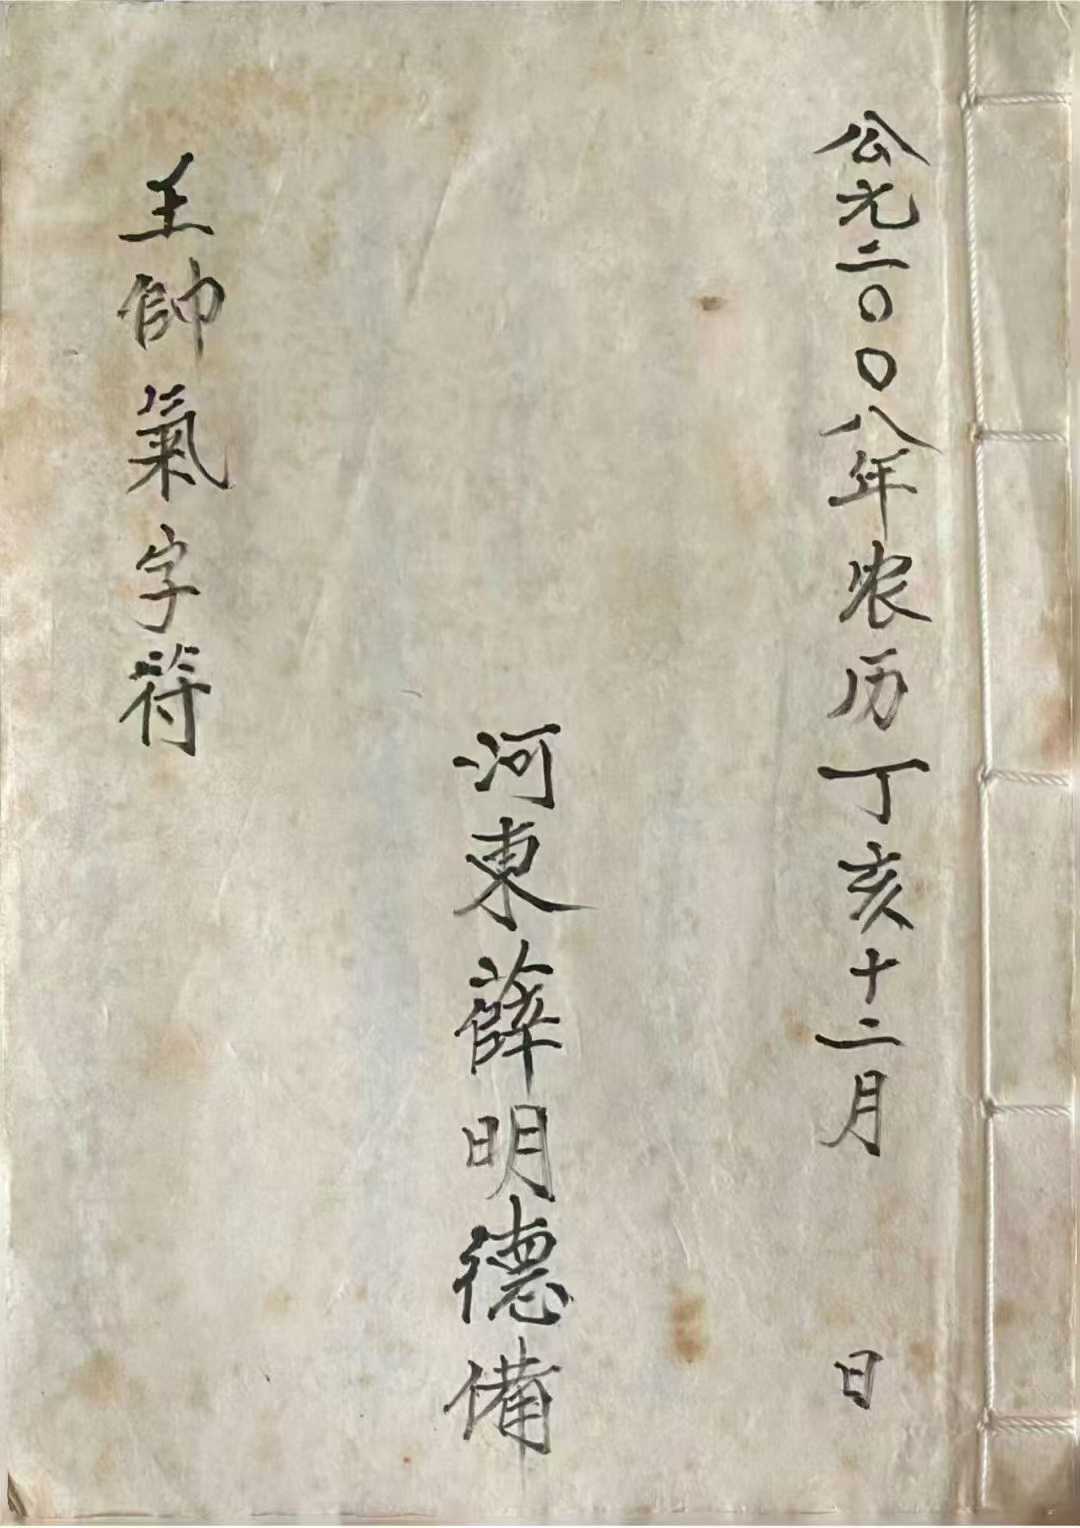 公元二〇〇八年农历丁亥十二月　　日
河東薛明德備
王帥氣字符